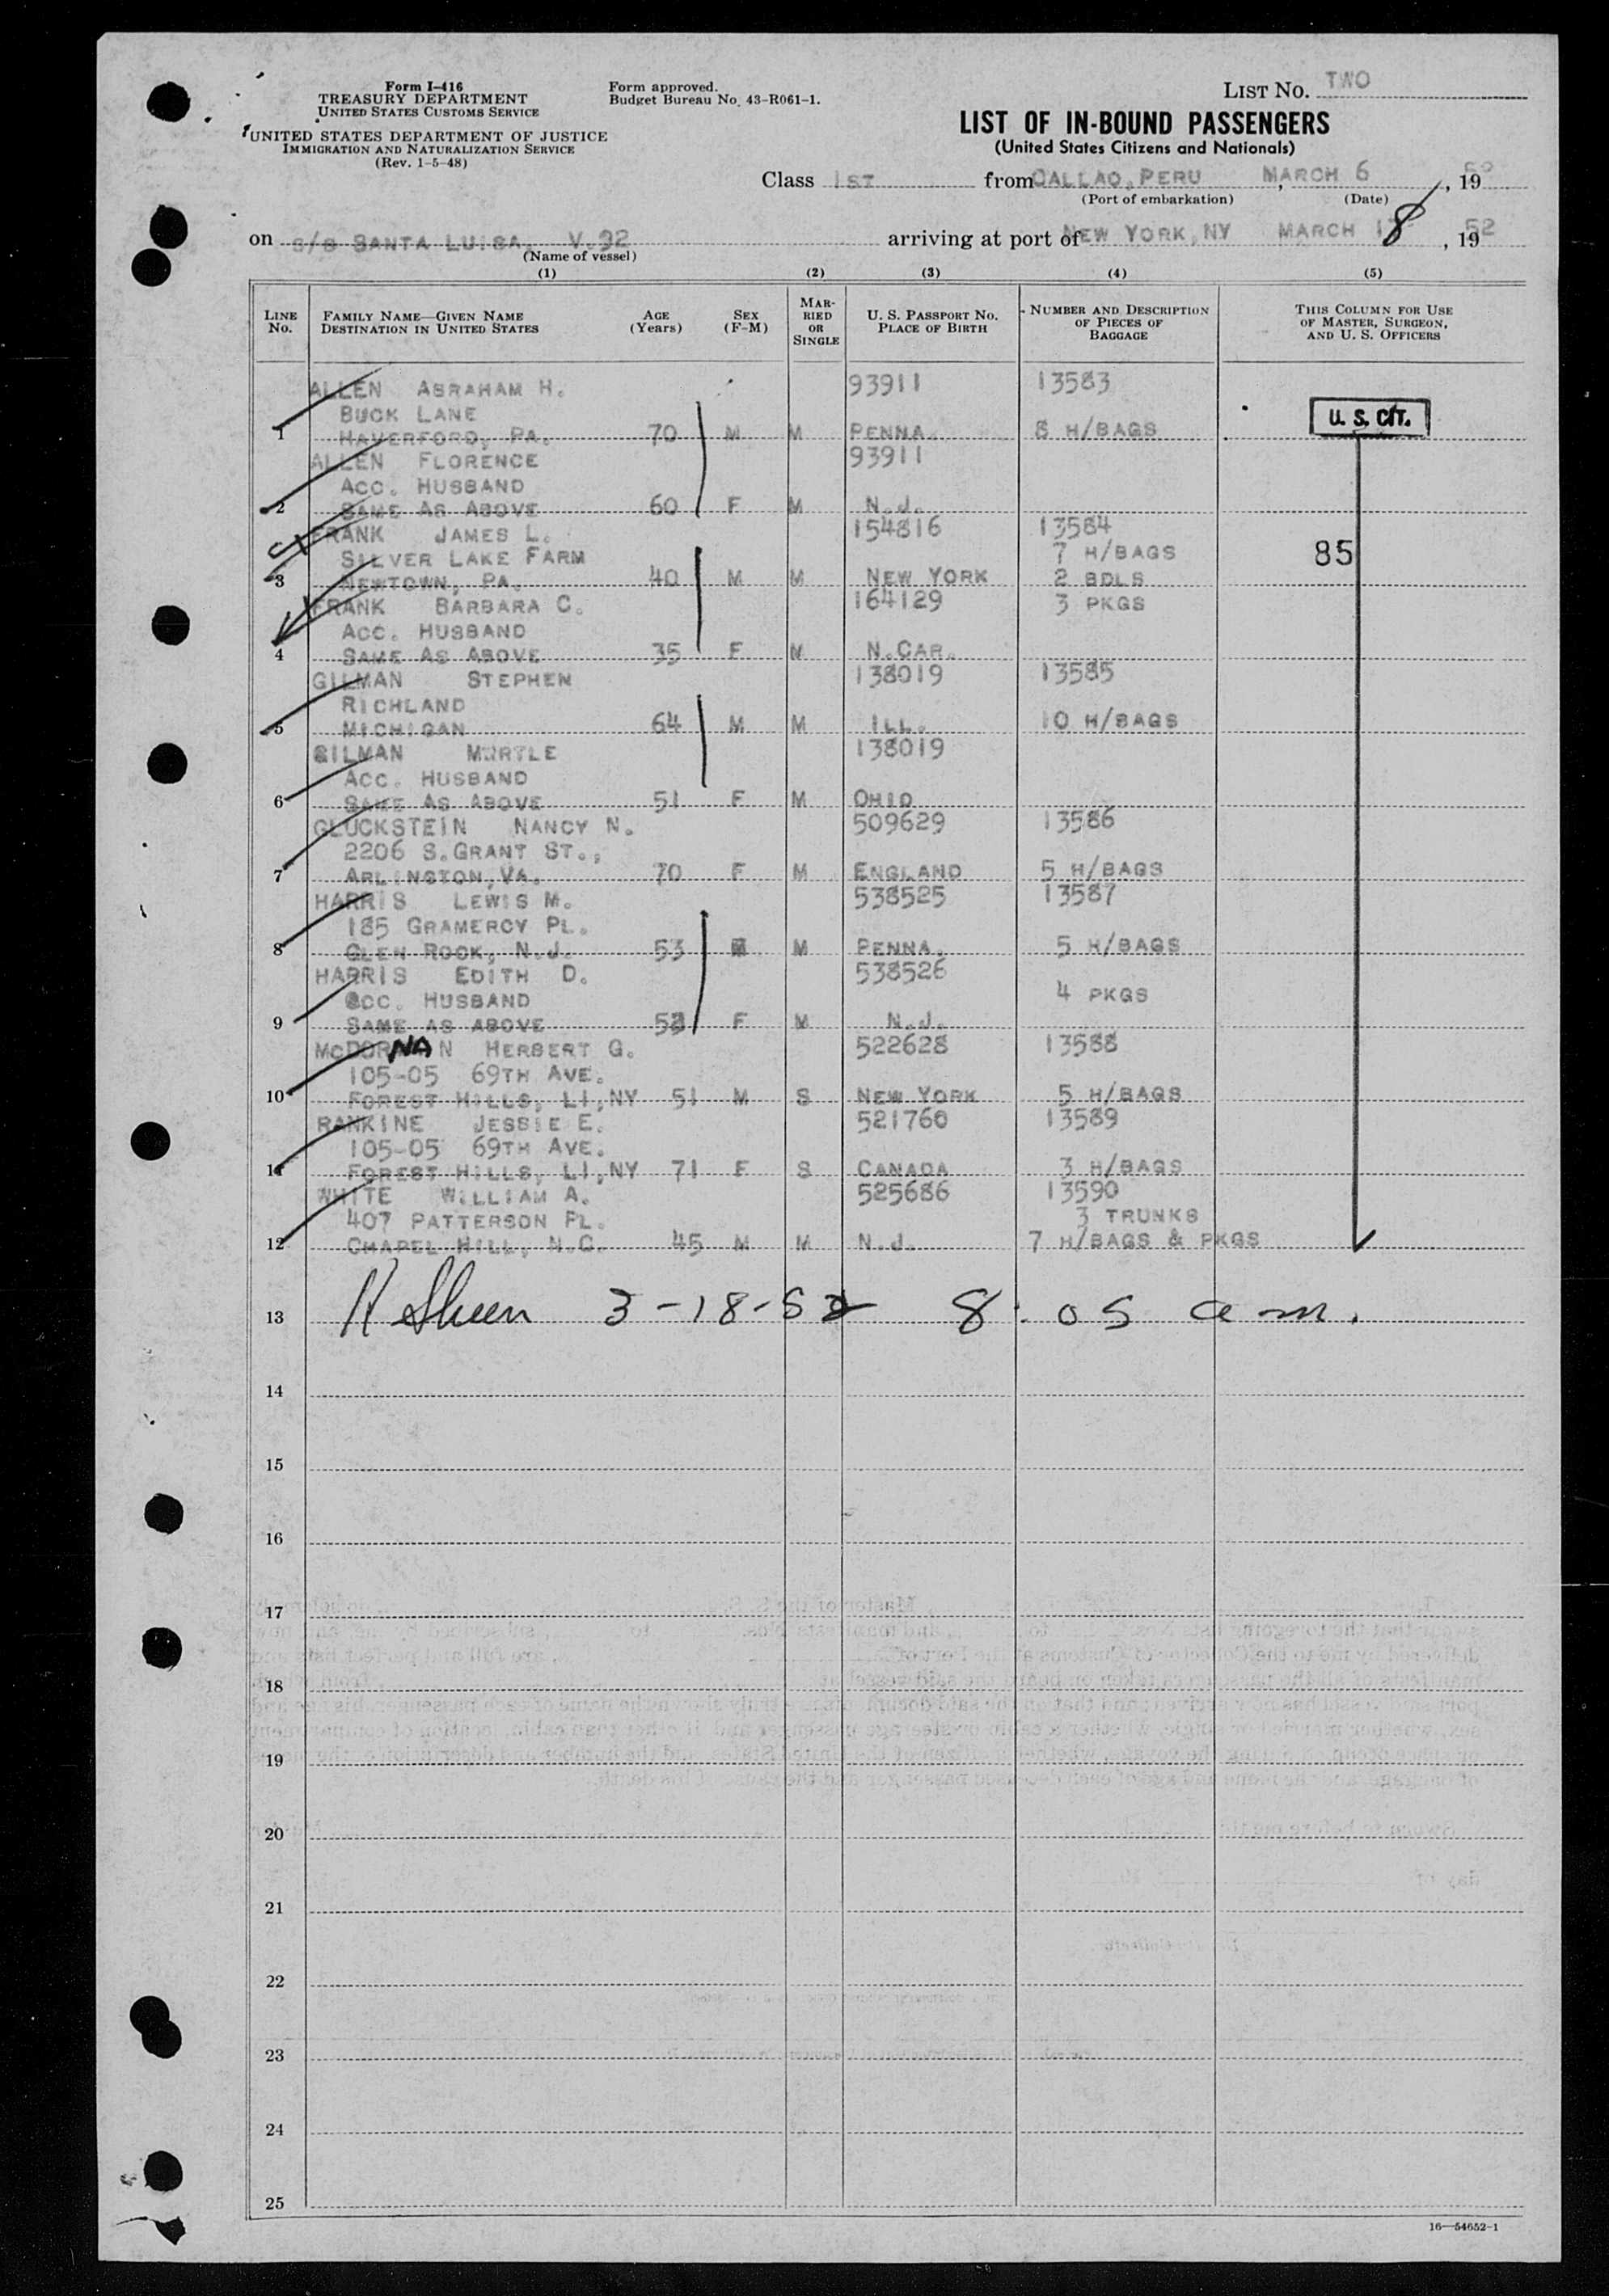 Form I-416
TREASURY DEPARTMENT
UNITED STATES CUSTOMS SERVICE
UNITED STATES DEPARTMENT OF JUSTICE
IMMIGRATION AND NATURALIZATION SERVICE
(Rev. 1-5-48)
Form approved.
Budget Bureau No. 43-R061-1.
LIST NO. TWO
LIST OF IN-BOUND PASSENGERS
(United States Citizens and Nationals)
Class 1ST from CALLAO, PERU , MARCH 6 , 19
(Port of embarkation) (Date)
on S/S SANTA LUISA, V.92 arriving at port of NEW YORK, NY MARCH 18 , 1952
(Name of vessel)
(1) (2) (3) (4) (5)
LINE NO. FAMILY NAME—GIVEN NAME DESTINATION IN UNITED STATES AGE (Years) SEX (F-M) MARRIED OR SINGLE U. S. PASSPORT NO. PLACE OF BIRTH NUMBER AND DESCRIPTION OF PIECES OF BAGGAGE THIS COLUMN FOR USE OF MASTER, SURGEON, AND U. S. OFFICERS
ALLEN ABRAHAM H. 93911 13583
BUCK LANE U. S. CIT.
1 HAVERFORD, PA. 70 M M PENNA. 8 H/BAGS
ALLEN FLORENCE 93911
ACC. HUSBAND
2 SAME AS ABOVE 60 F M N.J.
FRANK JAMES L. 154816 13584
SILVER LAKE FARM 7 H/BAGS 85
3 NEWTOWN, PA. 40 M M NEW YORK 2 BDLS
FRANK BARBARA C. 164129 3 PKGS
ACC. HUSBAND
4 SAME AS ABOVE 35 F M N.CAR.
GILMAN STEPHEN 138019 13585
RICHLAND
5 MICHIGAN 64 M M ILL. 10 H/BAGS
GILMAN MURTLE 138019
ACC. HUSBAND
6 SAME AS ABOVE 51 F M OHIO
GLUCKSTEIN NANCY N. 509629 13586
2206 S.GRANT ST.,
7 ARLINGTON, VA. 70 F M ENGLAND 5 H/BAGS
HARRIS LEWIS M. 538525 13587
185 GRAMERCY PL.
8 GLEN ROCK, N.J. 53 M PENNA. 5 H/BAGS
HARRIS EDITH D. 538526
ACC. HUSBAND 4 PKGS
9 SAME AS ABOVE F M N.J.
HERBERT G. 522628 13588
105-05 69TH AVE.
10 FOREST HILLS, LI,NY 51 M S NEW YORK 5 H/BAGS
RANKINE JESSIE E. 521760 13589
105-05 69TH AVE.
11 FOREST HILLS, LI,NY 71 F S CANADA 3 H/BAGS
WHITE WILLIAM A. 525686 13590
407 PATTERSON PL. 3 TRUNKS
12 CHAPEL HILL, N.C. 45 M M N.J. 7 H/BAGS & PKGS
13 3-18-52 8:05 am.
14
15
16
17
18
19
20
21
22
23
24
25
16—54652-1